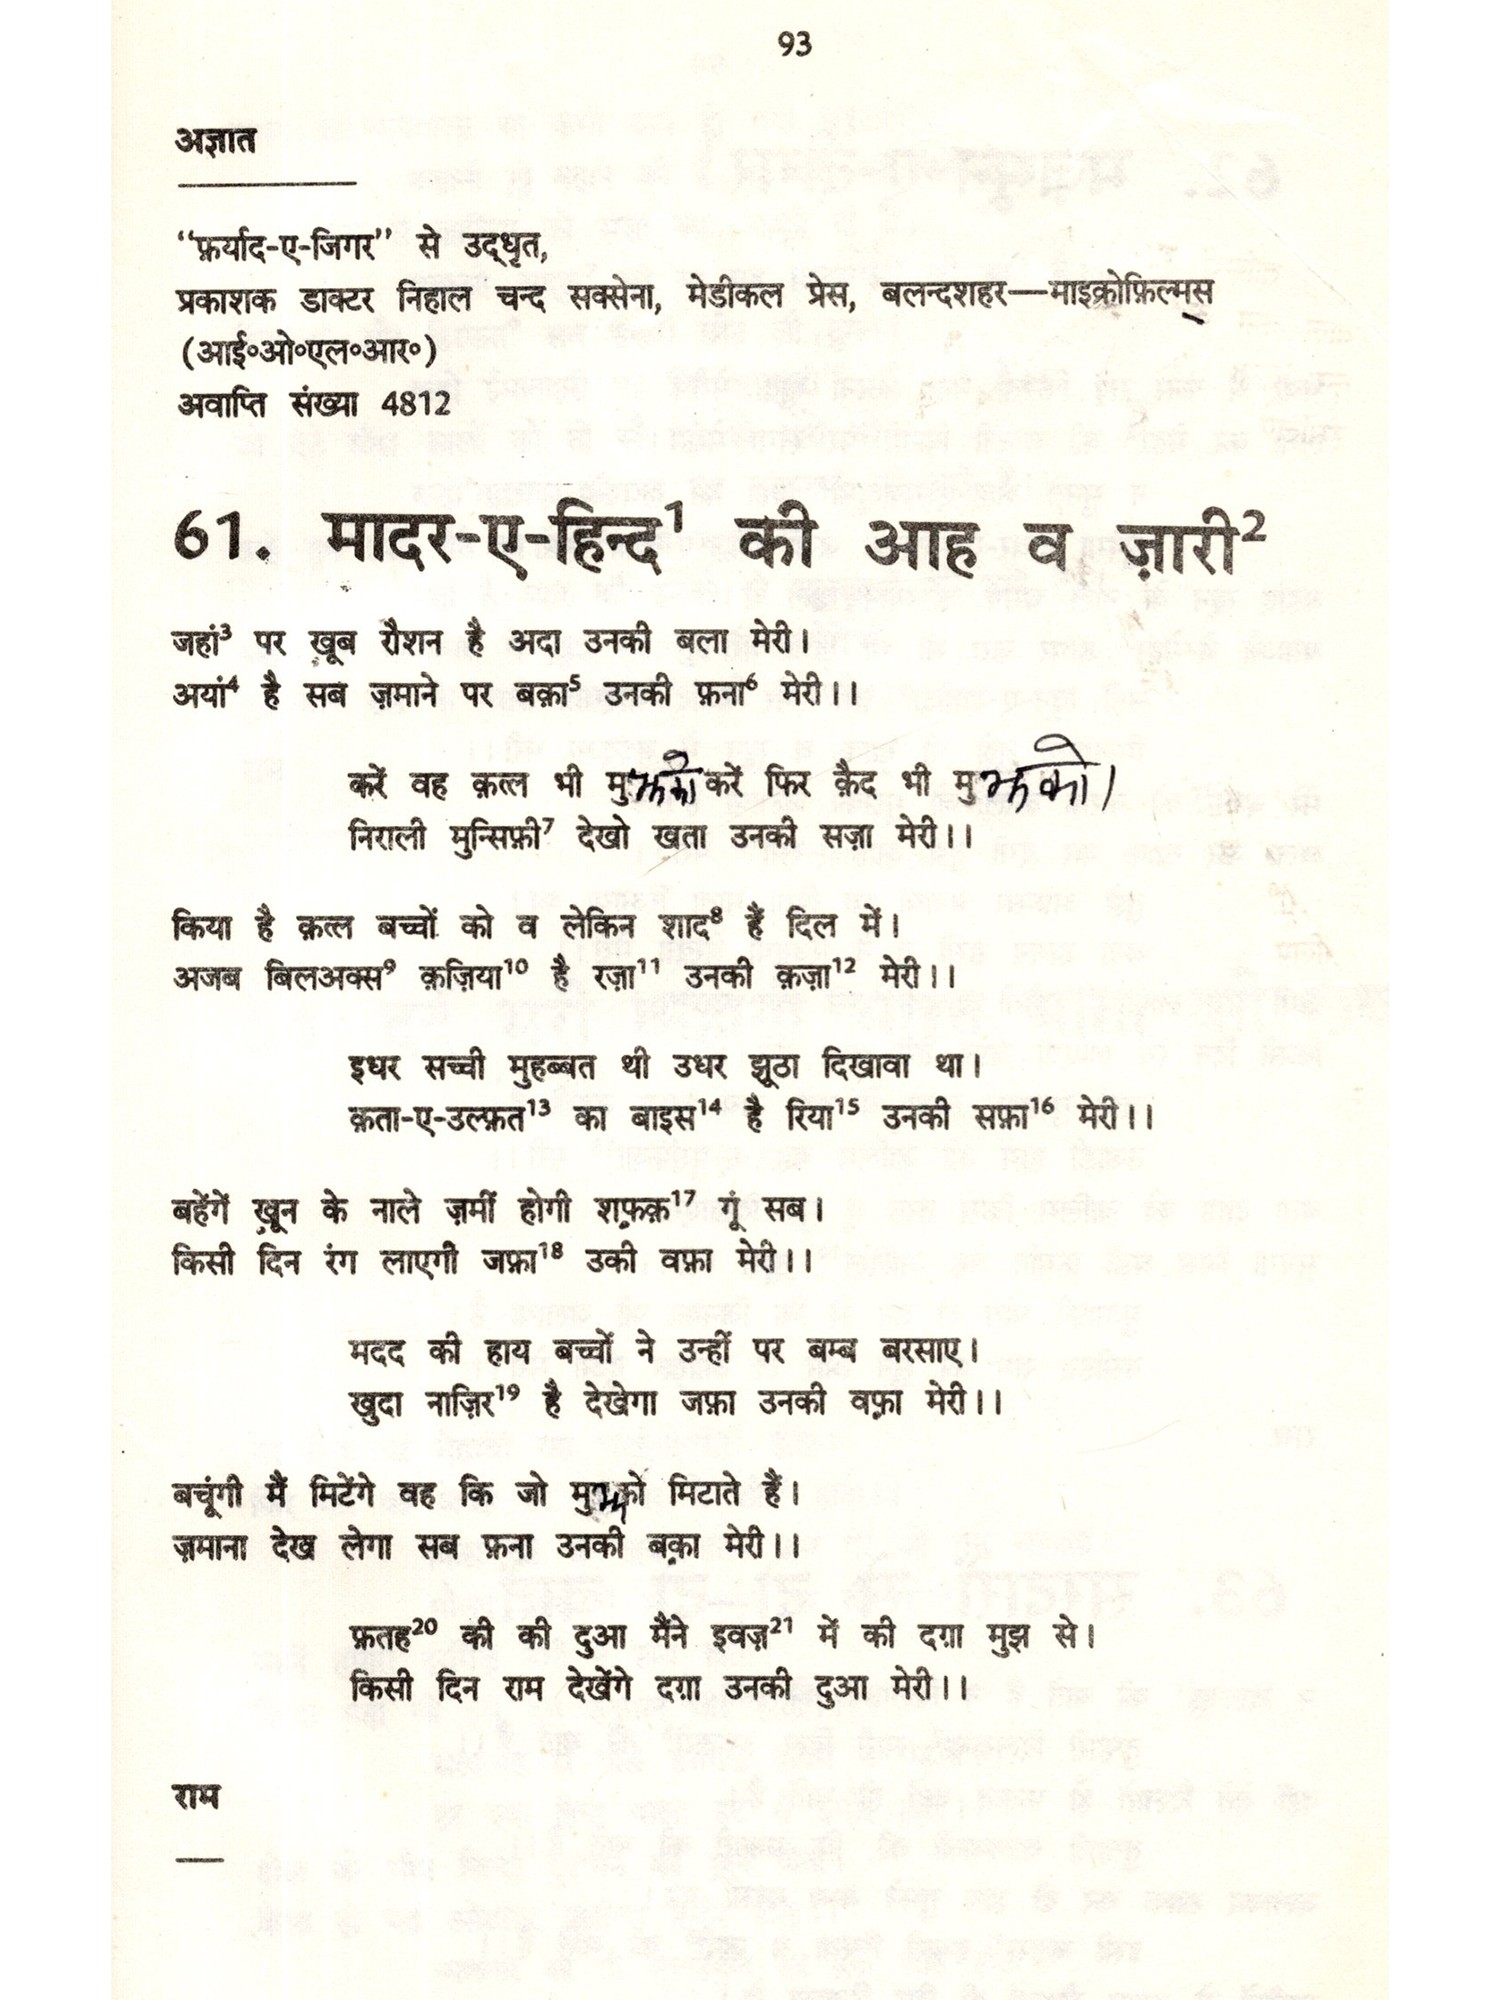 93
अज्ञात
“फ़र्याद-ए-जिगर” से उद्धृत,
प्रकाशक डाक्टर निहाल चन्द सक्सेना, मेडीकल प्रेस, बलन्दशहर—माइक्रोफ़िल्मस
(आई॰ओ॰एल॰आर॰)
अवाप्ति संख्या 4812
61. मादर-ए-हिन्द¹ की आह व ज़ारी²
जहां³ पर खूब रौशन है अदा उनकी बला मेरी।
अयां⁴ है सब ज़माने पर बक़ा⁵ उनकी फ़ना⁶ मेरी।।
करें वह क़त्ल भी मुझको करें फिर क़ैद भी मुझको।
निराली मुन्सिफ़ी⁷ देखो खता उनकी सज़ा मेरी।।
किया है क़त्ल बच्चों को व लेकिन शाद⁸ हैं दिल में।
अजब बिलअक्स⁹ क़ज़िया¹⁰ है रज़ा¹¹ उनकी क़ज़ा¹² मेरी।।
इधर सच्ची मुहब्बत थी उधर झूठा दिखावा था।
क़ता-ए-उल्फ़त¹³ का बाइस¹⁴ है रिया¹⁵ उनकी सफ़ा¹⁶ मेरी।।
बहेंगें ख़ून के नाले ज़मीं होगी शफ़क़¹⁷ गूं सब।
किसी दिन रंग लाएगी जफ़ा¹⁸ उकी वफ़ा मेरी।।
मदद की हाय बच्चों ने उन्हीं पर बम्ब बरसाए।
खुदा नाज़िर¹⁹ है देखेगा जफ़ा उनकी वफ़ा मेरी।।
बचूंगी मैं मिटेंगे वह कि जो मुझको मिटाते हैं।
ज़माना देख लेगा सब फ़ना उनकी बक़ा मेरी।।
फ़तह²⁰ की की दुआ मैंने इवज़²¹ में की दग़ा मुझ से।
किसी दिन राम देखेंगे दग़ा उनकी दुआ मेरी।।
राम